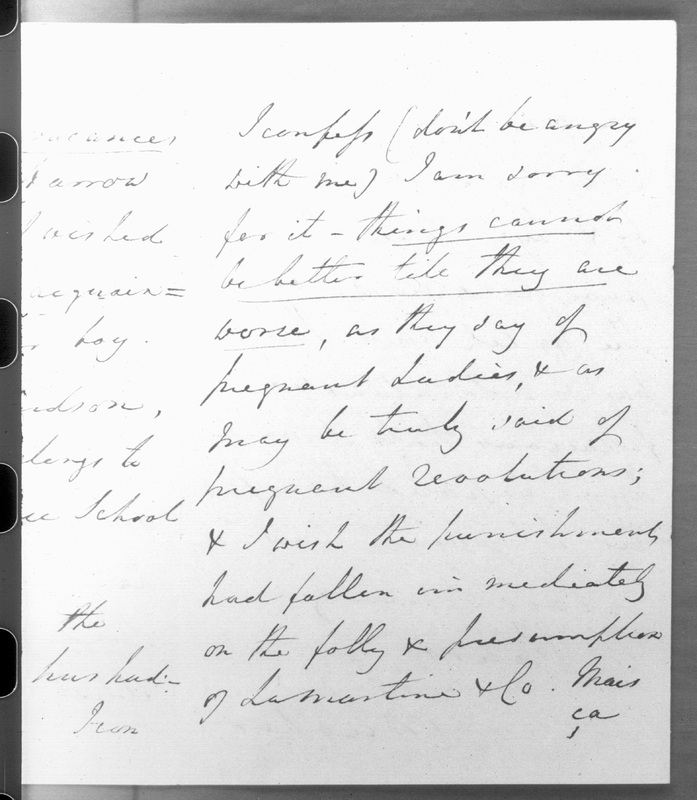 vacances
Harrow
I wished
acquain=
boy.
ndson,
longs to
School
the
has had-
I con
I confess (don't be angry
with me) I am sorry
for it - things cannot
be better till they are
worse, as they say of
pregnant Ladies, & as
may be truly said of
pregnant revolutions;
& I wish the punishments
had fallen immediately
on the folly & presumption
of Lamartine & Co. Mais
ça